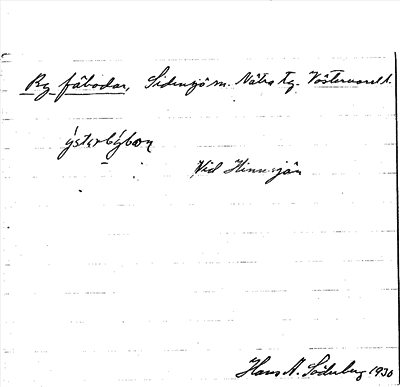 By fäbodar, Sidensjö sn. Nätra tg. Västernorrl.
ýstərbýbɷɳ
Vid Hinnsjön
Hans A. Söderberg 1930